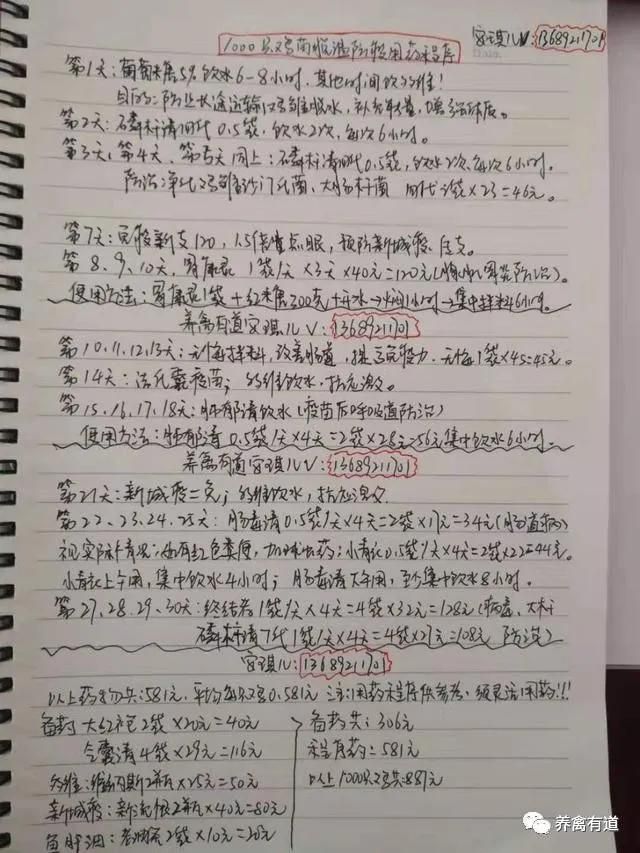 1000只鸡苗脱温阶段用药程序
宫琪儿V:13689211701
第1天:葡萄糖5%饮水6-8小时,其他时间饮多维!
目的:防止长途运输鸡雏脱水,补充能量,增强体质。
第2天:磷杆清7代0.5袋,饮水2次,每次6小时。
第3天、第4天、第5天同上:磷杆清7代0.5袋,饮水2次,每次6小时。
防治:净化鸡雏沙门氏菌、大肠杆菌 7代2袋×23=46元。
第7天:免疫新支120,1.5倍量点眼,预防新城疫、传支。
第8、9、10天,胃康君 1袋/天×3天×40元=120元(腺肌胃炎防治)。
使用方法:胃康君1袋+红糖200克+开水→焖1小时→集中拌料6小时。
养禽有道宫琪儿V:13689211701
第10.11.12.13天:拌料,改善肠道,提高免疫力,1袋×45=45元。
第14天:法氏囊疫苗;多维饮水,抗应激。
第15.16.17.18天:肺郁清饮水(疫苗后呼吸道防治)
使用方法:肺郁清0.5袋/天×4天=2袋×28元=56元集中饮水6小时。
养禽有道宫琪儿V:13689211701
第21天:新城疫二免;多维饮水,抗应激
第22、23、24、25天:肠毒清0.5袋/天×4天=2袋×17元=34元(肠道病)
视实际情况:如有红色粪便,加球虫药:小青/0.5袋/天×4天=2袋×22=44元。
小青上午用,集中饮水4小时;肠毒清下午用,至少集中饮水8小时。
第27.28.29.30天:终结者1袋/天×4天=4袋×32元=128元(病毒、大杆
磷杆清7代1袋/天×4天=4袋×27元=108元 防治)
宫琪儿:13689211701
以上药物共:581元,平均每只鸡0.581元 注:用药程序供参考,须灵活用药!!!
备药 大红包2袋×20元=40元
令囊清4袋×29元=116元
多维:维纳斯2瓶×25元=50元
新城疫:2瓶×40元=80元
鱼肝油:2袋×10元=20元
备药共:306元
程序药:581元
以上1000只鸡共:887元
养禽有道